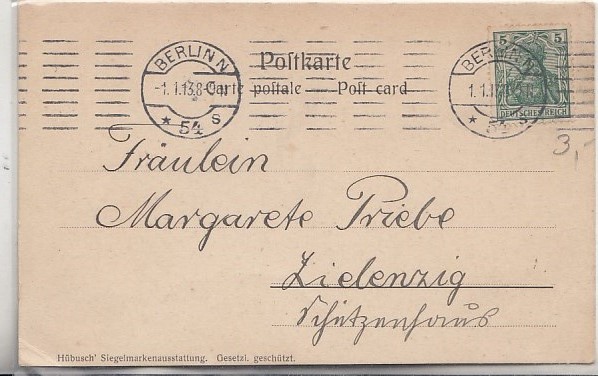 BERLIN N
-1.1.13.8-9
* 54 S
Postkarte
Carte postale — Post card
BERLIN N
1.1.13
5 5
DEUTSCHES REICH
3,-
Fräulein
Margarete Priebe
Zielenzig
Schützenhaus
Hübusch' Siegelmarkenausstattung. Gesetzl. geschützt.